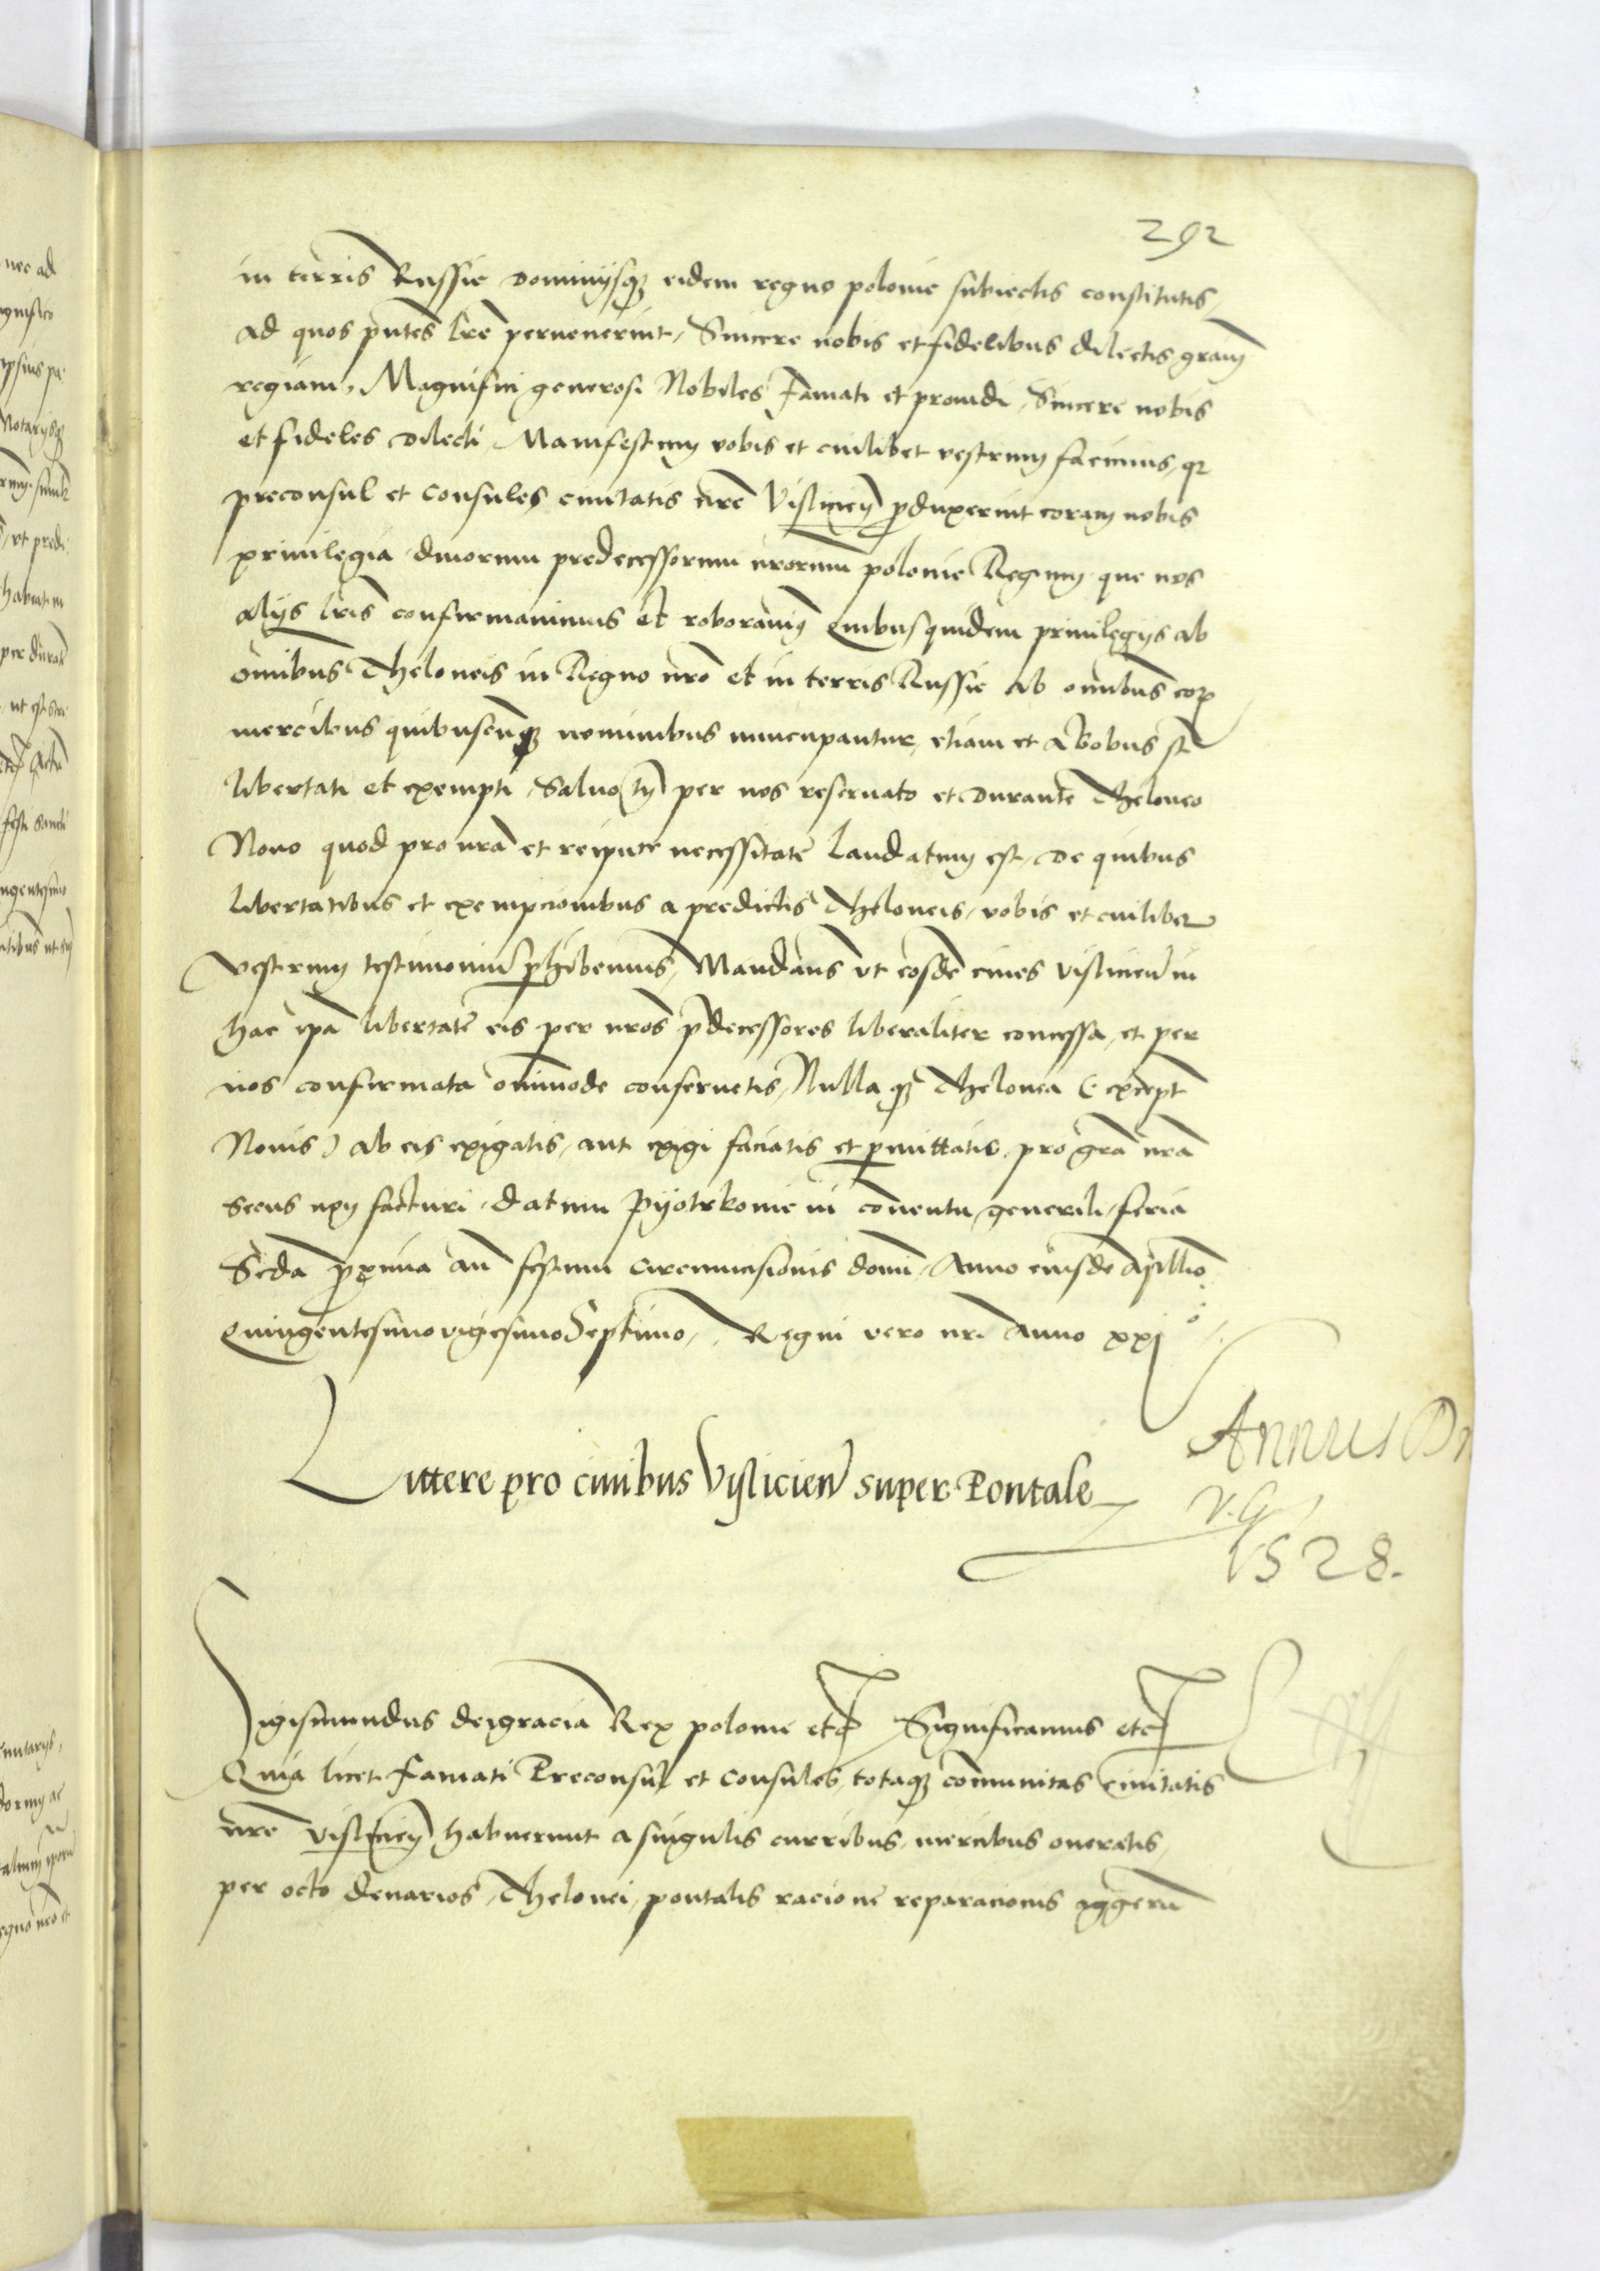 292
in terris Russie dominijsq₃ eidem regno polonie subiectis constitutis,
ad quos pntes lre peruenerint, Sincere nobis et fidelibus dilectis gram
regiam, Magnifici generosi Nobiles famati et prouidi, Sincere nobis
et fideles dilecti Manifestum vobis et cuilibet vestrum facimus, qz
preconsul et consules ciuitatis nre Vislicien produxerint coram nobis
priuilegia diuorum predecessorum nrorum polonie Regum, que nos
alijs lris confirmauimus et roborauimus Quibusquidem priuilegijs ab
omibus Theloneis in Regno nro et in terris Russie ab omnibus eor
mercibus quibuscunq₃ nominibus nuncupantur, etiam et a bobus st
libertati et exempti, Saluo tn per nos reseruato et durante Theloneo
Nouo quod pro nra et reipuce necessitate laudatum est, de quibus
libertatibus et exempcionibus a predictis Theloneis, vobis et cuilibet
vestrum testimoniu phibemus, Mandans vt eosde ciues vislicien in
hac ipa libertate eis per nros pdecessores liberaliter concessa, et per
nos confirmata omimode conseruetis, Nulla q₃ Thelonea (except
Nouis) ab eis exigatis, aut exigi faciatis et pmittatis, pro gra nra
secus non facturi, datum Pijotrkouie in conuentu generali, feria
Scda pxima an festum circumcisionis domi, Anno eiusde Millio
Quingentesimo vigesimo Septimo, Regni vero nri Anno xxj°
Littere pro ciuibus Vislicien super Pontale
Annus D
V. G
1528.
Sigismundus dei gracia Rex polonie etc Significamus etc
Quia licet famati Preconsul et consules, totaq₃ comunitas ciuitatis
nre vislicien habuerunt a singulis curribus, mercibus oneratis,
per octo denarios, Thelonei, pontalis racione reparacionis aggeru